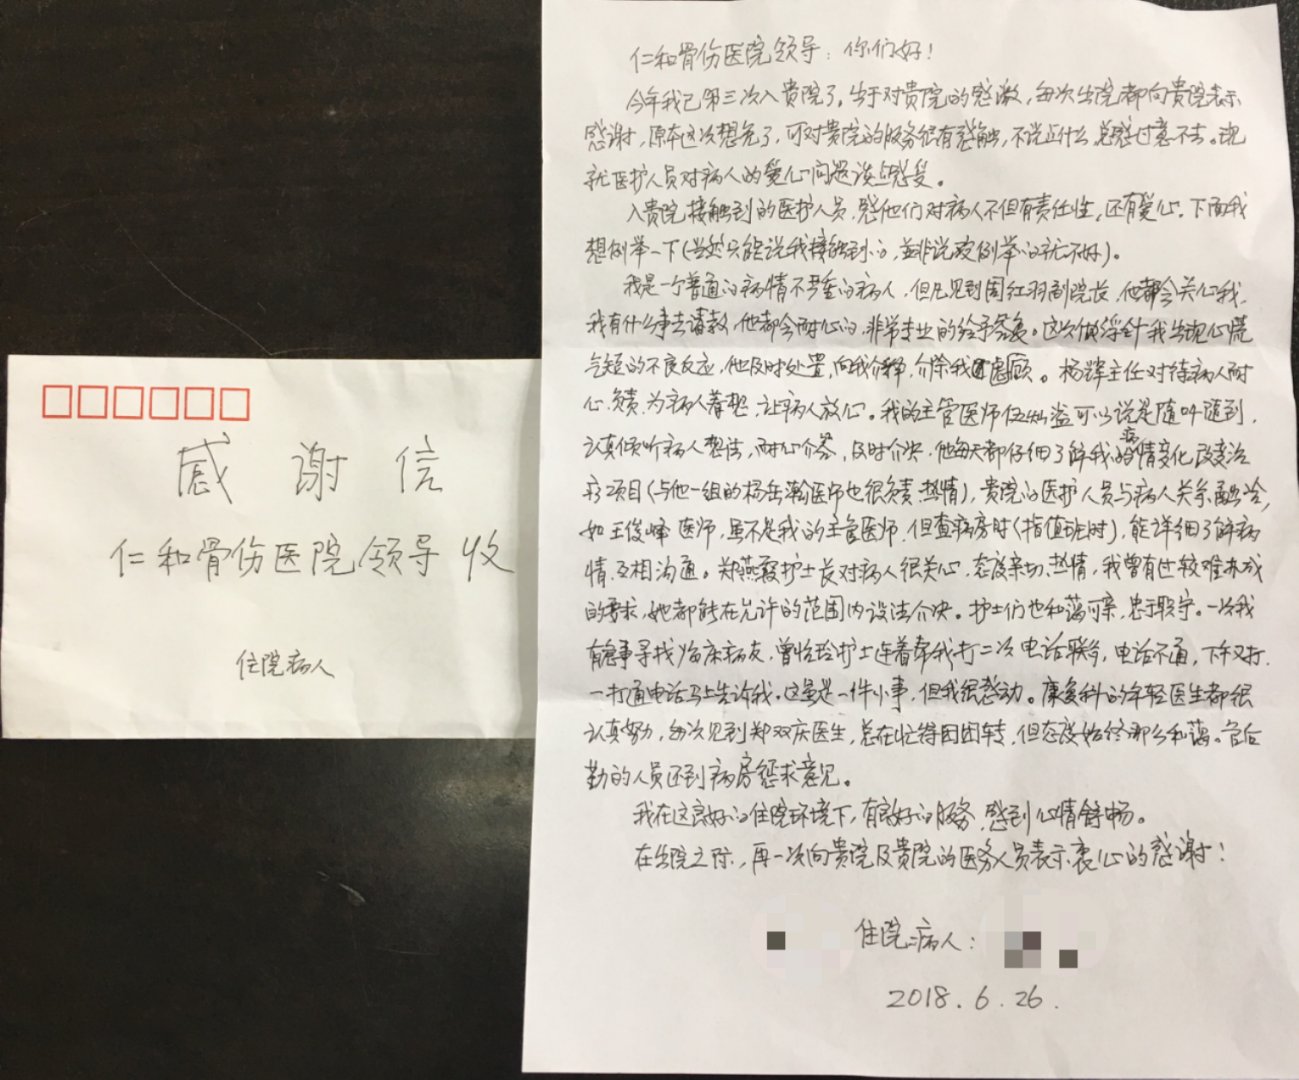 感谢信
仁和骨伤医院领导 收
住院病人
仁和骨伤医院领导：你们好！
今年我已第三次入贵院了。出于对贵院的感激，每次出院都向贵院表示
感谢，原本这次想免了，可对贵院的服务很有感触，不说点什么，总感过意不去。现
就医护人员对病人的爱心问题谈点感受。
入贵院接触到的医护人员，感他们对病人不但有责任性，还有爱心。下面我
想例举一下（当然只能说我接触到的，并非说没例举的就不好）。
我是一个普通的病情不严重的病人，但凡见到周红羽副院长，他都会关心我，
我有什么事去请教，他都会耐心的，非常专业的给予答复。这次做浮针我出现心慌
气短的不良反应，他及时处置，向我介释，介除我顾虑。杨辉主任对待病人耐
心、负责，为病人着想，让病人放心。我的主管医师伍灿溢可以说是随叫随到，
认真倾听病人想法，耐心介答，及时介决，他每天都仔细了解我病情变化，改变治
疗项目（与他一组的杨岳瀚医师也很负责、热情），贵院的医护人员与病人关系融洽，
如王俊峰医师，虽不是我的主管医师，但查病房时（指值班时），能详细了解病
情，互相沟通。郑燕霞护士长对病人很关心，态度亲切、热情，我曾有过较难办成
的要求，她都能在允许的范围内设法介决。护士们也和蔼可亲，忠于职守。一次我
有急事寻找临床病友，曾怡玲护士连着帮我打二次电话联系，电话不通，下午又打，
一打通电话马上告诉我。这虽是一件小事，但我很感动。康复科的年轻医生都很
认真努力，每次见到郑双庆医生，总在忙得团团转，但态度始终那么和蔼。管后
勤的人员还到病房征求意见。
我在这良好的住院环境下，有良好的服务，感到心情舒畅。
在出院之际，再一次向贵院及贵院的医务人员表示衷心的感谢！
住院病人：
2018.6.26.